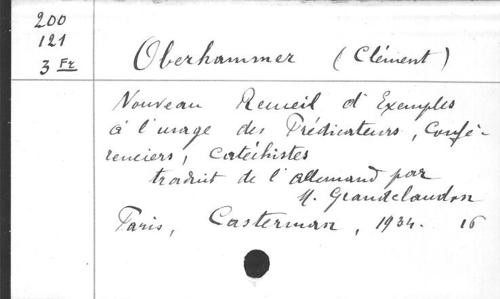 200
121
3 Fr
Oberhammer (Clément)
Nouveau Recueil d'Exemples
à l'usage des Prédicateurs, Confé-
renciers, Catéchistes
traduit de l'allemand par
M. Grandclaudon
Paris, Casterman, 1934. 16